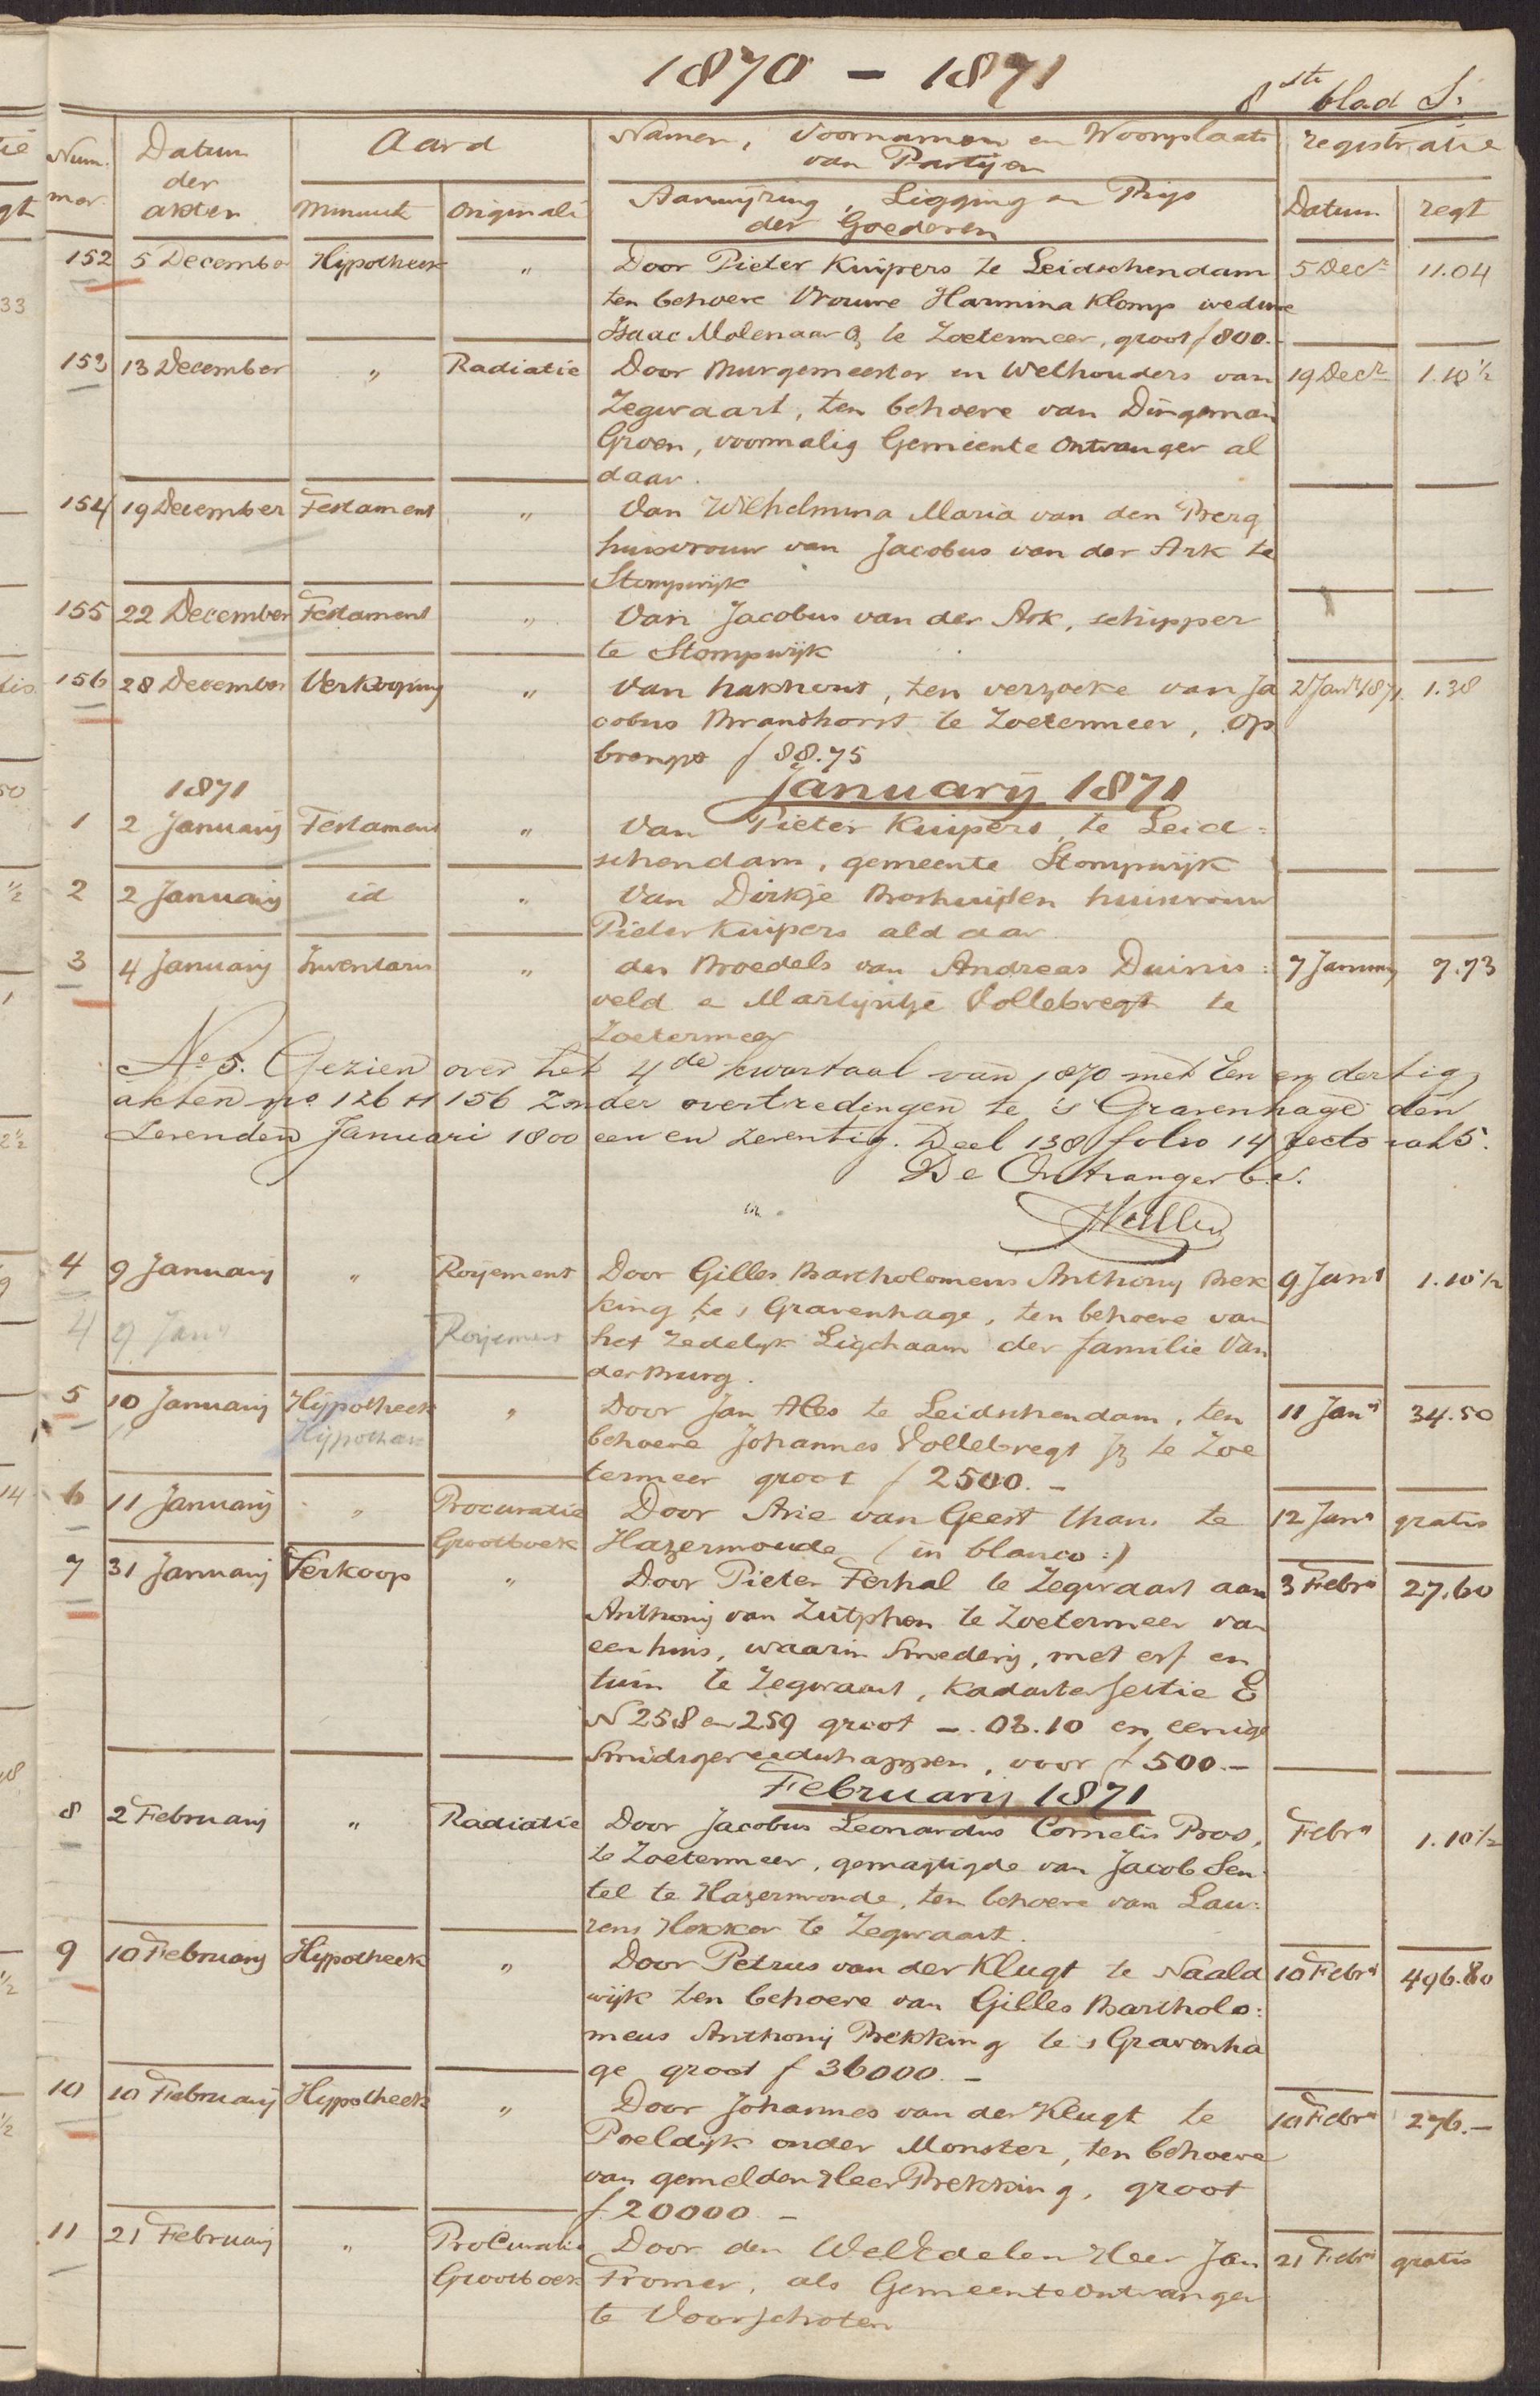 1870 - 1871
8ste blad S.
Num. mer. Datum der akten Aard Namen, Voornamen en Woonplaats van Partijen registratie
Minuut Originali Aanwijzing, Ligging en Prijs der Goederen Datum regt
152 5 December Hypotheek " Door Pieter Kuipers te Leidschendam 5 Decr 11.04
ten behoeve Vrouwe Harmina Klomp weduwe
Isaac Molenaar Az te Zoetermeer, groot f 800.-
153 13 December " Radiatie Door Burgemeester en Wethouders van 19 Decr 1.10½
Zegwaart, ten behoeve van Dingeman
Groen, voormalig Gemeente Ontvanger al
daar.
154 19 December Testament " Van Wilhelmina Maria van den Berg
huisvrouw van Jacobus van der Ark te
Stompwijk
155 22 December Testament " Van Jacobus van der Ark, schipper
te Stompwijk
156 28 December Verkooping " Van hakhout, ten verzoeke van Ja 2 Jan 1871. 1.38
cobus Brandhorst te Zoetermeer, op
brengst f 88.75
1871 Januarij 1871
1 2 Januarij Testament " Van Pieter Kuipers, te Leid=
schendam, gemeente Stompwijk
2 2 Januarij id " Van Dirkje Boshuijsen huisvrouw
Pieter Kuipers aldaar
3 4 Januarij Inventaris " des Boedels van Andreas Duinis= 7 Januarij 7.73
veld en Martijntje Vollebregt te
Zoetermeer
No 5. Gezien over het 4de kwartaal van 1870 met Een en dertig
akten no 126 tt 156 zonder overtredingen te 's Gravenhage den
Zevenden Januari 1800 een en zeventig. Deel 138 folio 14 recto vak 5.
De Ontvanger b.v.
4 9 Januarij " Royement Door Gilles Bartholomeus Anthony Bek 9 Jan 1.10½
king te s Gravenhage, ten behoeve van
4 9 Jan Royement het Zedelijk Ligchaam der familie Van
der Burg.
5 10 Januarij Hypotheek " Door Jan Ales te Leidschendam, ten 11 Jan 34.50
Hypotheek behoeve Johannes Vollebregt Jz te Zoe
termeer groot f 2500.-
6 11 Januarij " Procuratie Door Arie van Geest thans te 12 Jan gratis
Grootboek Hazerswoude (in blanco:)
7 31 Januarij Verkoop " Door Pieter Ferhal te Zegwaart aan 3 Febr 27.60
Anthonij van Zutphen te Zoetermeer van
een huis, waarin Smederij, met erf en
tuin te Zegwaart, Kadaster sectie E
N 258 en 259 groot -.03.10 en eenige
Smidsgereedschappen, voor f 500.-
Februarij 1871
8 2 Februarij " Radiatie Door Jacobus Leonardus Cornelis Bos, Febr 1.10½
te Zoetermeer, gemagtigde van Jacob Sen
tel te Hazerswoude, ten behoeve van Lau=
rens Hokker te Zegwaart.
9 10 Februarij Hypotheek " Door Petrus van der Klugt te Naald 10 Febr 496.80
wijk ten behoeve van Gilles Bartholo=
meus Anthonij Bekking te s Gravenha
ge groot f 36000.-
10 10 Februarij Hypotheek " Door Johannes van der Klugt te 10 Febr 276.-
Poeldijk onder Monster, ten behoeve
van gemelden Heer Bekking, groot
f 20000.-
11 21 Februarij " Procuratie Door den WelEdelen Heer Jan 21 Febr gratis
Grootboek Fromer, als Gemeente Ontvanger
te Voorschoten